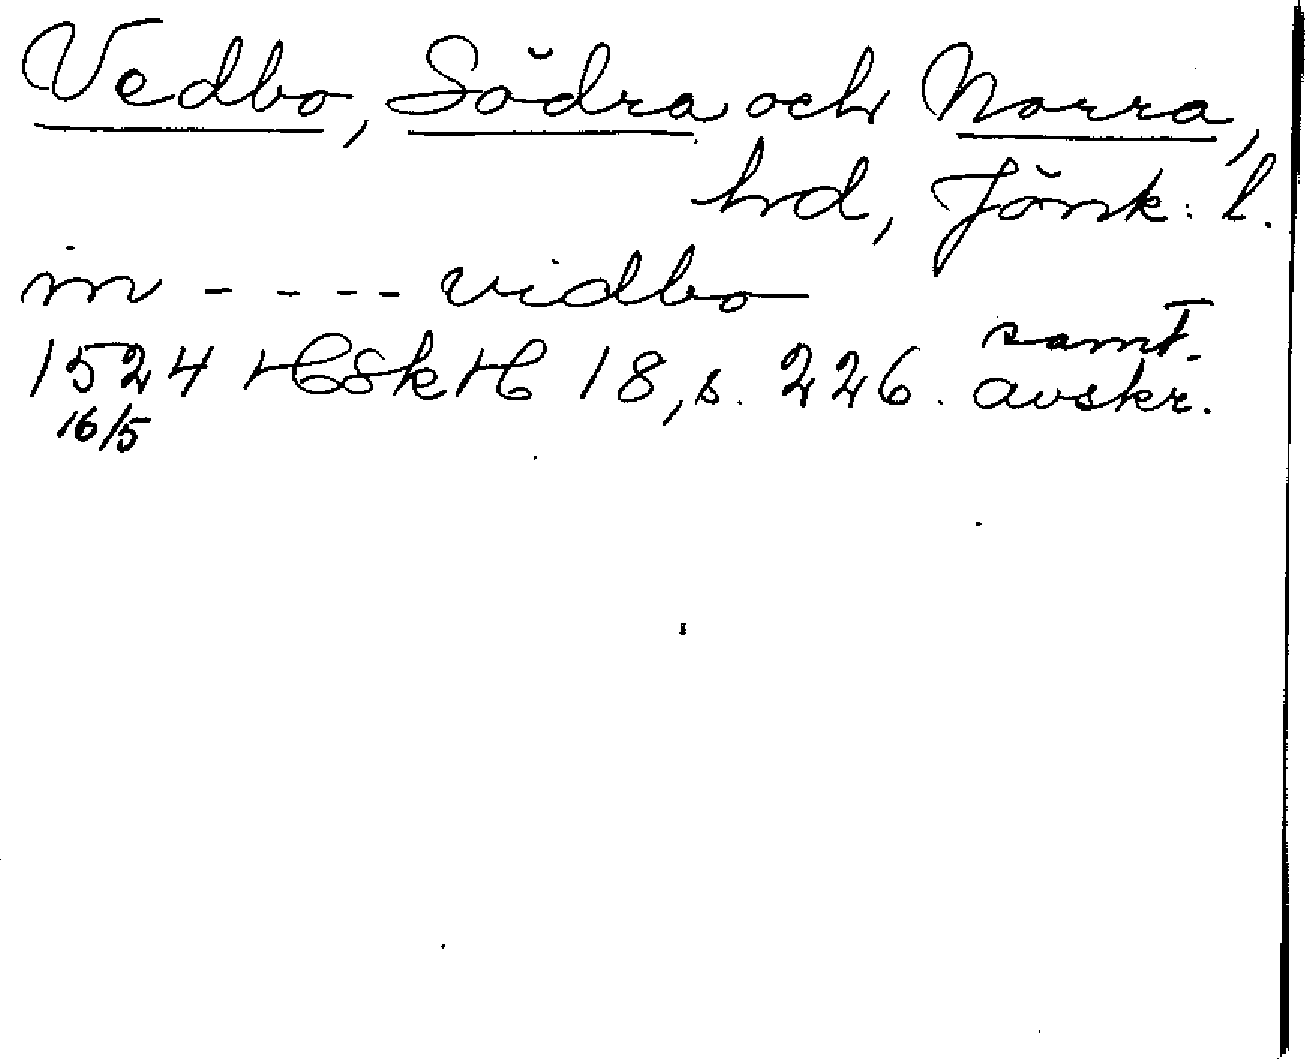 Vedbo, Södra och Norra,
hrd, Jönk. l.
in - - - - vidbo
1524 HSkH 18, s. 226. samt. avskr.
16/5